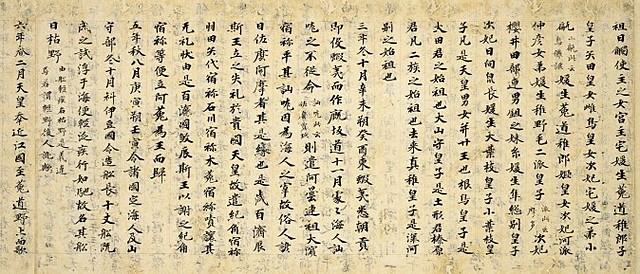 祖日觸使主之女宮主宅媛生菟道稚郎子
皇子矢田皇女雌鳥皇女次妃宅媛之弟小
甂媛生菟道稚郎姬皇女次妃河派
仲彥女弟媛生稚野毛二派皇子次妃
櫻井田部連男鉏之妹糸媛生隼總別皇子
次妃日向泉長媛生大葉枝皇子小葉枝皇
子凡是天皇男女并廿王也根鳥皇子是
大田君之始祖也大山守皇子是土形君榛原
君凡二族之始祖也去來真稚皇子是深河
別之始祖也
三年冬十月辛未朔癸酉東蝦夷悉朝貢
即役蝦夷而作廐坂道十一月處々海人訕
哤之不從命則遣阿曇連祖大濱
宿祢平其訕哤因為海人之宰故俗人諺
曰佐麼阿摩者其是緣也是歲百濟辰
斯王立之失礼於貴國天皇故遣紀角宿祢
羽田矢代宿祢石川宿祢木菟宿祢嘖讓其
无礼狀由是百濟國敎辰斯王以謝之紀角
宿祢等便立阿花為王而歸
五年秋八月庚寅朔壬寅令諸國定海人及山
守部冬十月科伊豆國令造船長十丈船既
成之試浮于海便輕泛疾行如馳故名其船
曰枯野由船輕疾名枯野是義違焉若謂輕野後人訛歟
六年春二月天皇幸近江國至菟道野上而歌